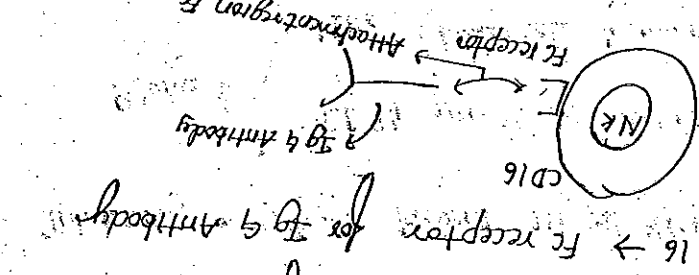 16 → Fc receptor for Ig G Antibody
CD16
Ig G Antibody
NK
Fc receptor
Attachment region Fc